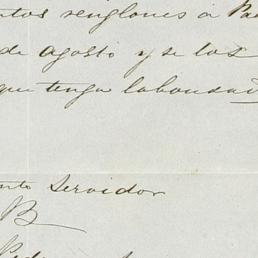 renglones a
de agosto y se los
que tenga la bondad
Servidor
B